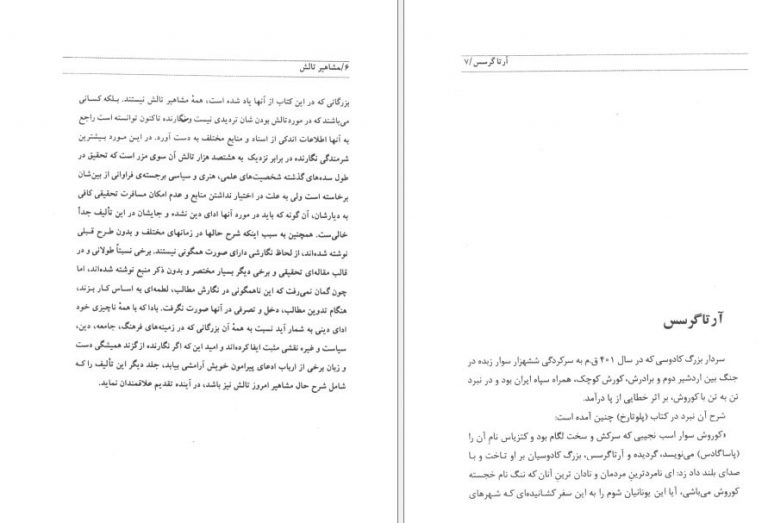 ۶/مشاهیر تالش
بزرگانی که در این کتاب از آنها یاد شده است، همهٔ مشاهیر تالش نیستند. بلکه کسانی
می‌باشند که در مورد تالش بودن شان تردیدی نیست و نگارنده تاکنون توانسته است راجع
به آنها اطلاعات اندکی از اسناد و منابع مختلف به دست آورد. در این مورد بیشترین
شرمندگی نگارنده در برابر نزدیک به هشتصد هزار تالش آن سوی مرز است که تحقیق در
طول سده‌های گذشته شخصیت‌های علمی، هنری و سیاسی برجسته‌ی فراوانی از بین‌شان
برخاسته است ولی به علت در اختیار نداشتن منابع و عدم امکان مسافرت تحقیقی کافی
به دیارشان، آن گونه که باید در مورد آنها ادای دین نشده و جایشان در این تألیف جداً
خالی‌ست. همچنین به سبب اینکه شرح حالها در زمانهای مختلف و بدون طرح قبلی
نوشته شده‌اند، از لحاظ نگارشی دارای صورت همگونی نیستند. برخی نسبتاً طولانی و در
قالب مقاله‌ای تحقیقی و برخی دیگر بسیار مختصر و بدون ذکر منبع نوشته شده‌اند، اما
چون گمان نمی‌رفت که این ناهمگونی در نگارش مطالب، لطمه‌ای به اساس کار بزند،
هنگام تدوین مطالب، دخل و تصرفی در آنها صورت نگرفت. بادا که با همهٔ ناچیزی خود
ادای دینی به شمار آید نسبت به همهٔ آن بزرگانی که در زمینه‌های فرهنگ، جامعه، دین،
سیاست و غیره نقشی مثبت ایفا کرده‌اند و امید این که اگر نگارنده از گزند همیشگی دست
و زبان برخی از ارباب ادعای پیرامون خویش آرامشی بیابد، جلد دیگر این تألیف را که
شامل شرح حال مشاهیر امروز تالش نیز باشد، در آینده تقدیم علاقمندان نماید.
آرتاگرسس/۷
آرتاگرسس
سردار بزرگ کادوسی که در سال ۴۰۱ ق.م به سرکردگی ششهزار سوار زبده در
جنگ بین اردشیر دوم و برادرش، کورش کوچک، همراه سپاه ایران بود و در نبرد
تن به تن با کوروش، بر اثر خطایی از پا درآمد.
شرح آن نبرد در کتاب (پلوتارخ) چنین آمده است:
«کوروش سوار اسب نجیبی که سرکش و سخت لگام بود و کتزیاس نام آن را
(پاساگادس) می‌نویسد، گردیده و آرتاگرسس، بزرگ کادوسیان بر او تاخت و با
صدای بلند داد زد: ای نامردترین مردمان و نادان ترین آنان که ننگ نام خجسته
کوروش می‌باشی، آیا این یونانیان شوم را به این سفر کشانیده‌ای که شهرهای